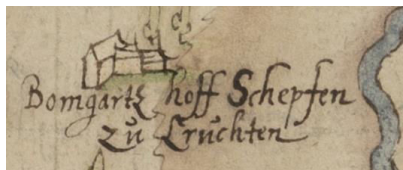 Bomgartz hoff Schepfen
zu Cruchten